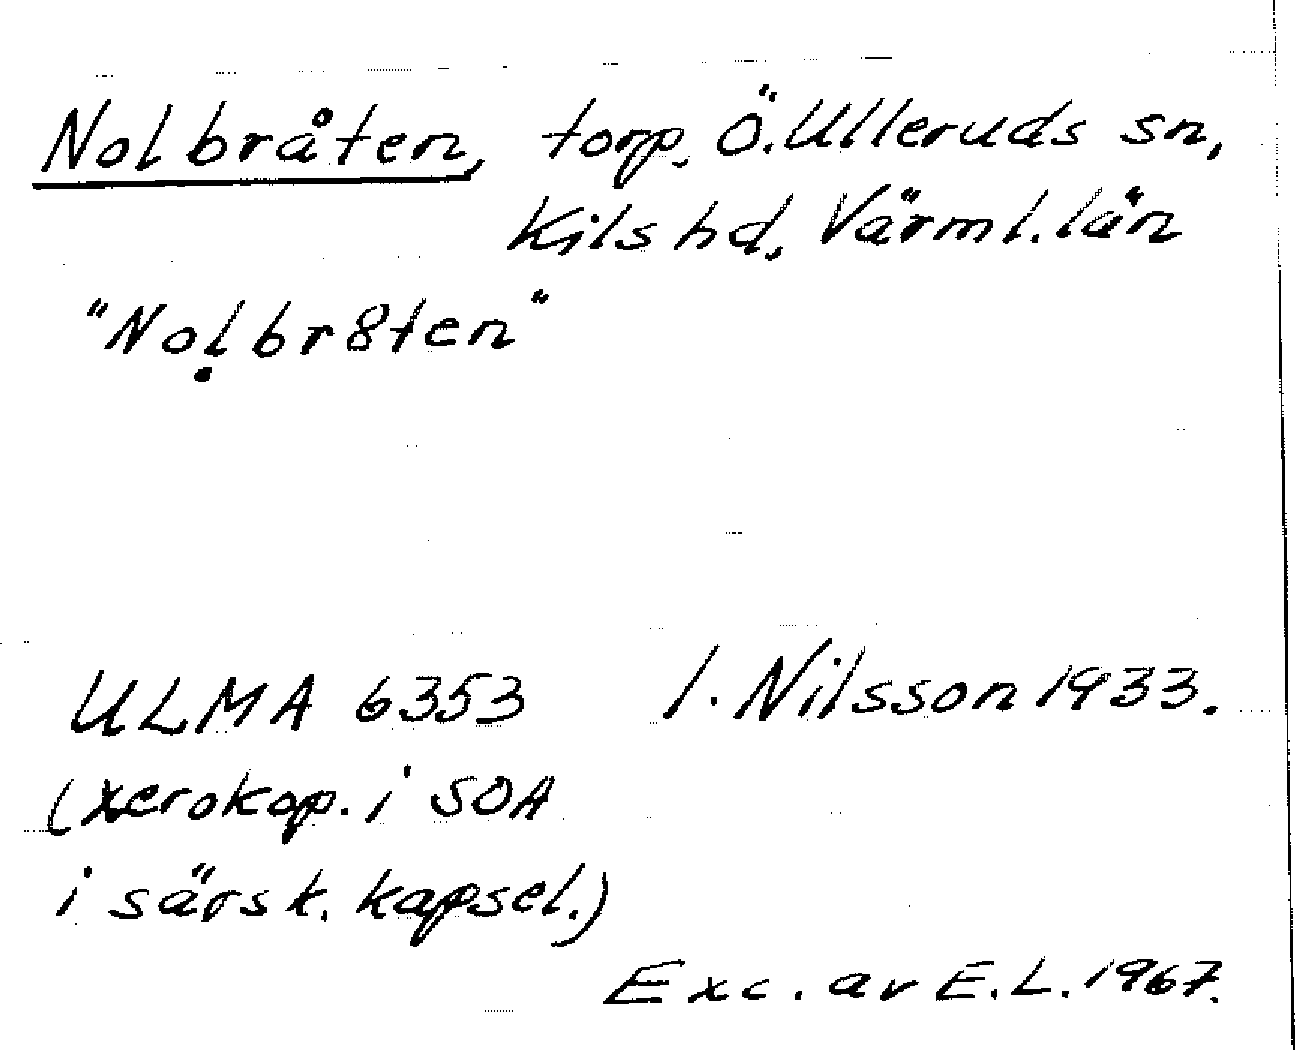 Nolbråten, torp, Ö. Ulleruds sn,
Kils hd, Värml. län
"Noḷbr8ten"
ULMA 6353 I. Nilsson 1933.
(xerokop. i SOA
i särsk. kapsel.)
Exc. av E. L. 1967.